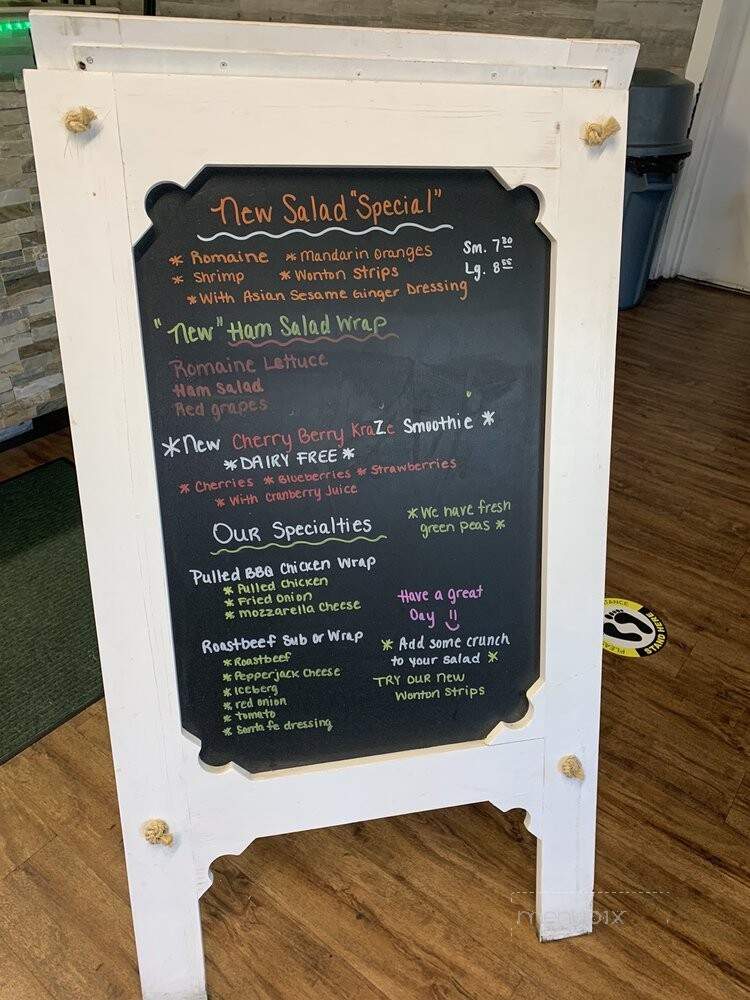 New Salad "Special"
* Romaine * Mandarin Oranges
* Shrimp * Wonton Strips
* With Asian Sesame Ginger Dressing
Sm. 7
Lg. 8
"New" Ham Salad Wrap
Romaine Lettuce
Ham Salad
Red grapes
* New Cherry Berry KraZe Smoothie *
* DAIRY FREE *
* Cherries * Blueberries * Strawberries
* With Cranberry Juice
Our Specialties
* We have fresh
green peas *
Pulled BBQ Chicken Wrap
* Pulled Chicken
* Fried Onion
* Mozzarella Cheese
Have a great
Day !!
Roastbeef Sub or Wrap
* Roastbeef
* Pepperjack Cheese
* Iceberg
* red onion
* Tomato
* Santa fe dressing
* Add some crunch
to your salad *
TRY OUR New
Wonton Strips
STAND HERE
menupix